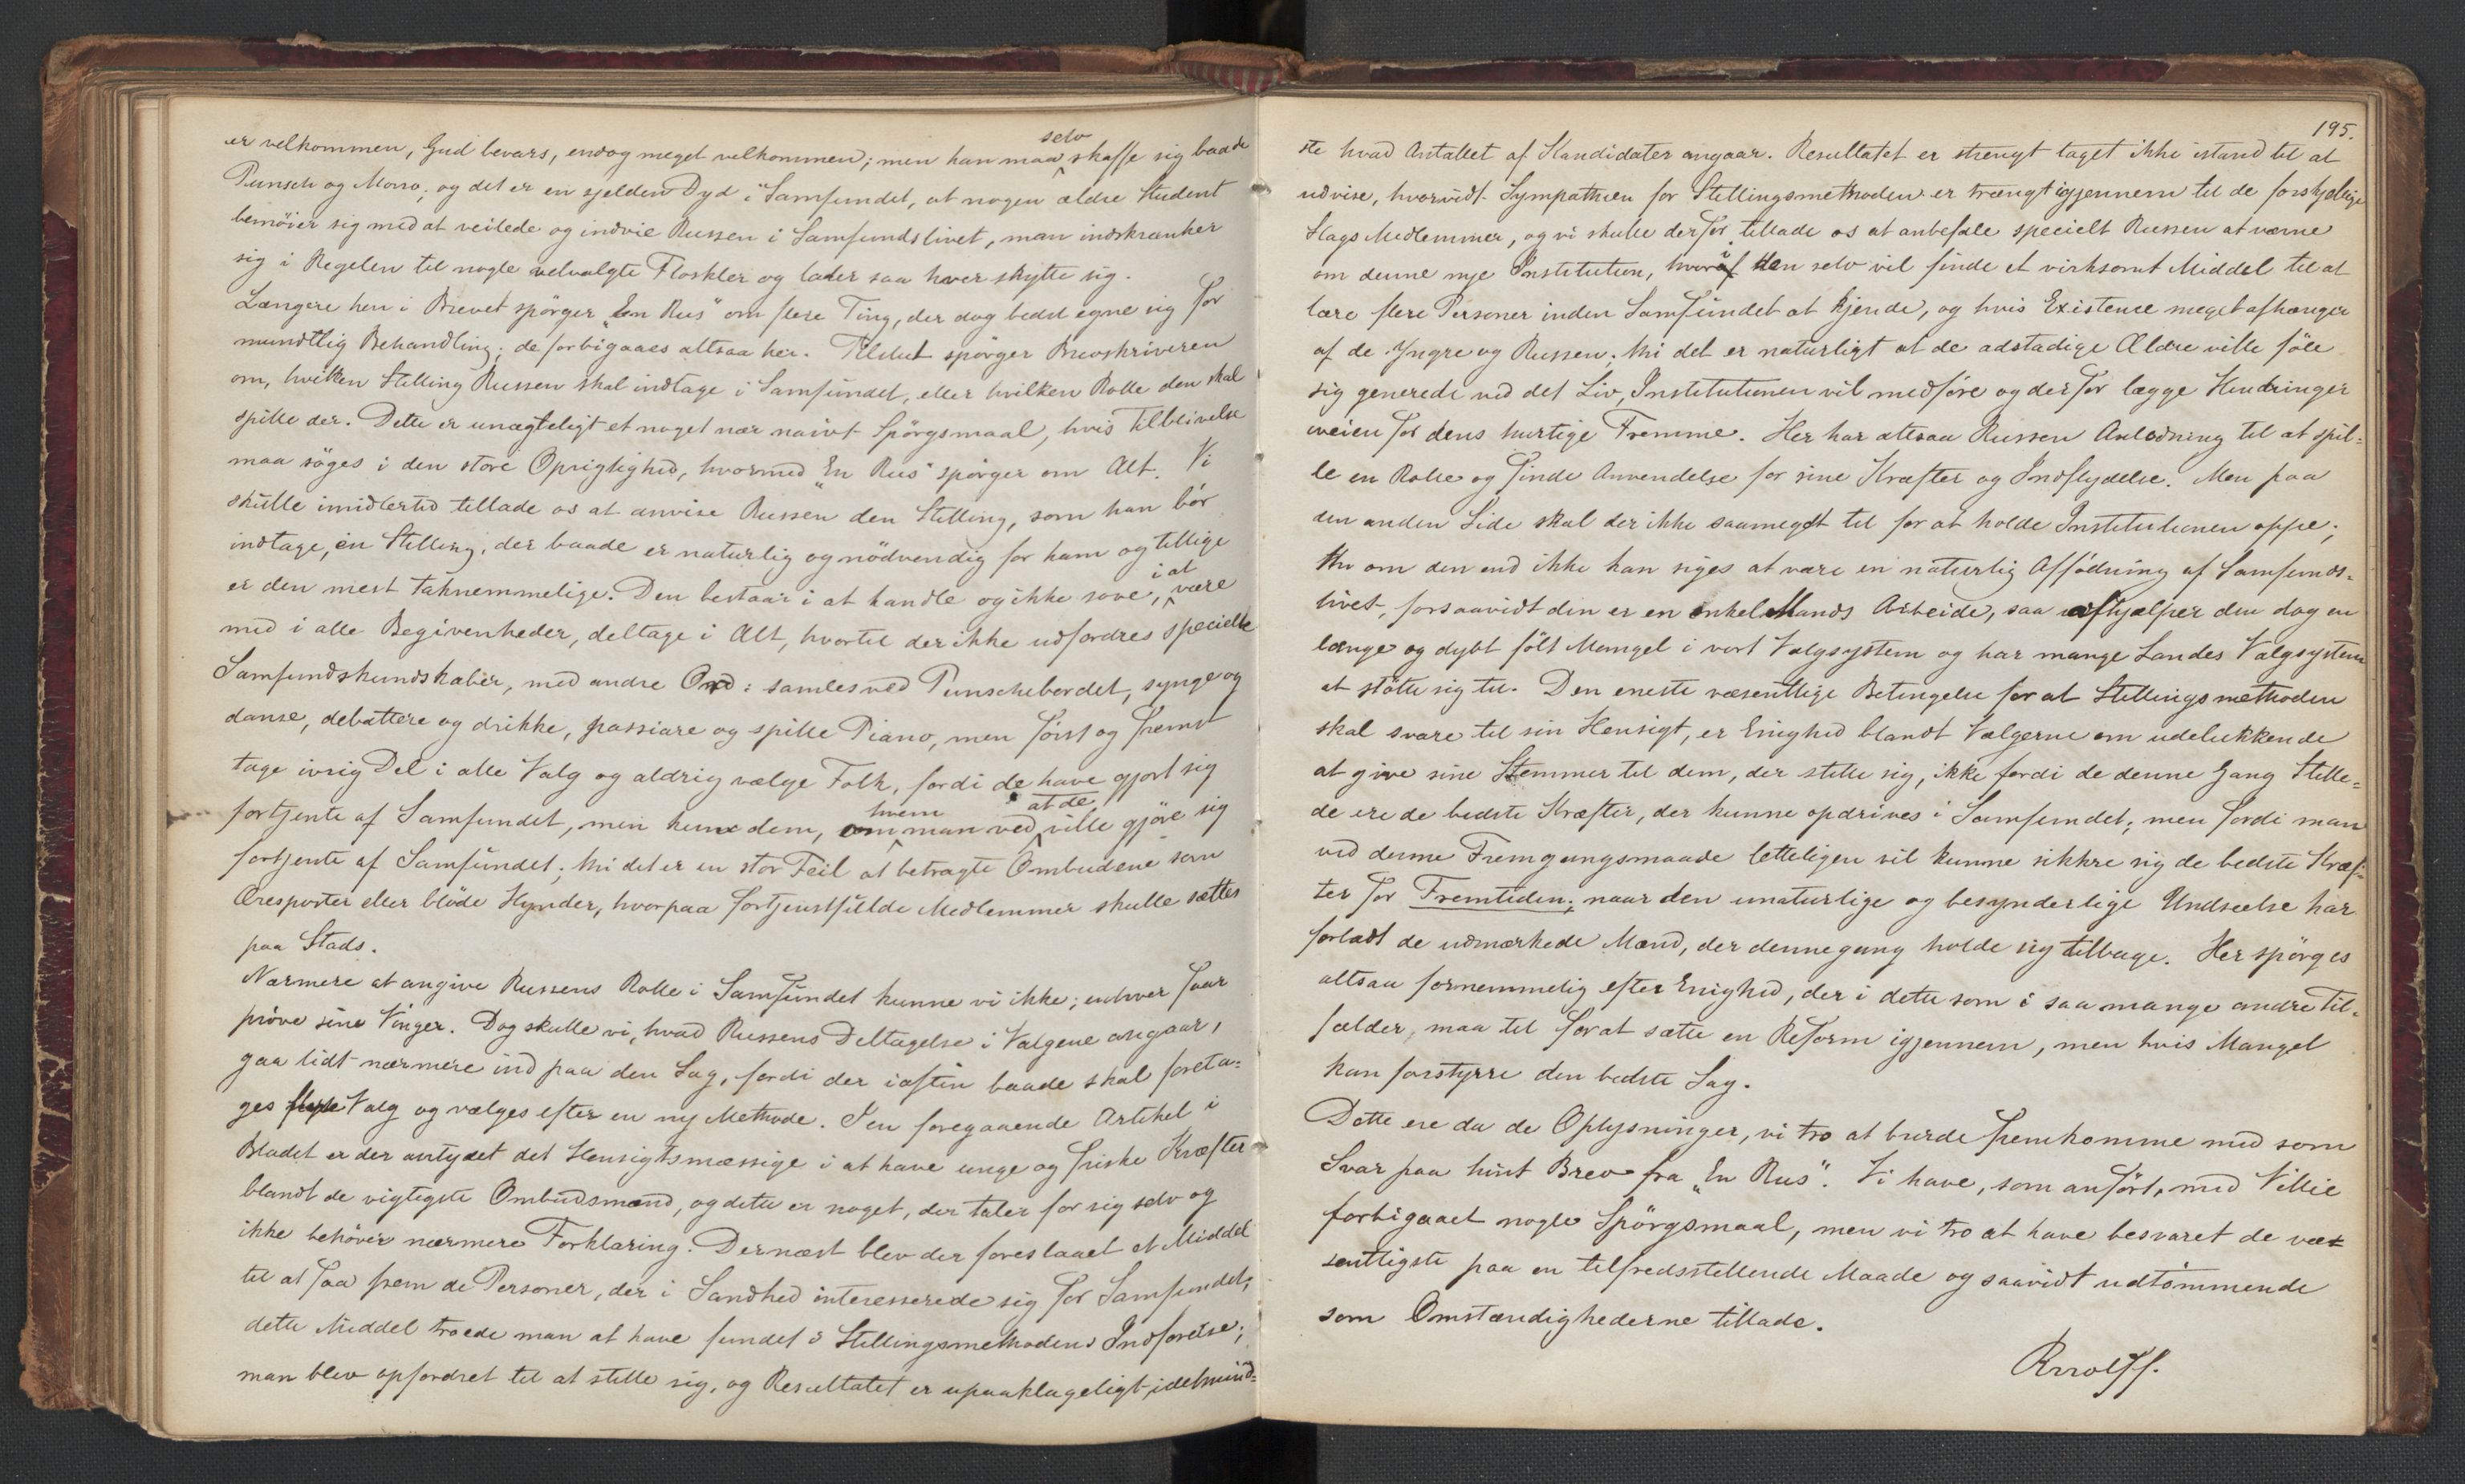 er velkommen, Gud bevars, endog meget velkommen; men han maa selv skaffe sig baade
Punsch og Moro; og det er en sjelden Dyd i Samfundet, at nogen ældre Student
bemöier sig med at veilede og indvie Russen i Samfundslivet, man indskrænker
sig i Regelen til nogle velvalgte Floskler og lader saa hver skytte sig.
Længere hen i Brevet spörger „En Rus" om flere Ting, der dog bedst egne sig for
mundtlig Behandling; de forbigaaes altsaa her. Tilslut spörger Brevskriveren
om, hvilken Stilling Russen skal indtage i Samfundet, eller hvilken Rolle den skal
spille der. Dette er unægteligt et noget nær naivt Spörgsmaal, hvis Tilblivelse
maa söges i den store Oprigtighed, hvormed „En Rus" spörger om Alt. Vi
skulle imidlertid tillade os at anvise Russen den Stilling, som han bör
indtage, en Stilling, der baade er naturlig og nödvendig for ham og tillige
er den mest taknemmelige. Den bestaar i at handle og ikke sove, i at være
med i alle Begivenheder, deltage i Alt, hvortil der ikke udfordres specielle
Samfundskundskaber, med andre Ord: samles ved Punschebordet, synge og
danse, debattere og drikke, passiare og spille Piano, men först og fremst
tage ivrig Del i alle Valg og aldrig vælge Folk, fordi de have gjort sig
fortjente af Samfundet, men kun dem, om hvem man ved, at de ville gjöre sig
fortjente af Samfundet; thi det er en stor Feil at betragte Ombudene som
Æresposter eller blöde Hynder, hvorpaa fortjenstfulde Medlemmer skulle sættes
paa Stads.
Nærmere at angive Russens Rolle i Samfundet kunne vi ikke; enhver faar
pröve sine Vinger. Dog skulle vi, hvad Russens Deltagelse i Valgene angaar,
gaa lidt nærmere ind paa den Sag, fordi der iaften baade skal foreta-
ges flere Valg og vælges efter en ny Methode. I en foregaaende Artikel i
Bladet er der antydet det Hensigtsmæssige i at have unge og friske Kræfter
blandt de vigtigste Ombudsmænd, og dette er noget, der taler for sig selv og
ikke behöver nærmere Forklaring. Dernæst blev der foreslaaet et Middel
til at faa frem de Personer, der i Sandhed interesserede sig for Samfundet;
dette Middel troede man at have fundet i Stillingsmethodens Indförelse;
man blev opfordret til at stille sig, og Resultatet er upaaklageligt, idetmind-
195.
ste hvad Antallet af Kandidater angaar. Resultatet er strengt taget ikke istand til at
udvise, hvorvidt Sympathien for Stillingsmethoden er trængt igjennem til de forskjelige
Slags Medlemmer, og vi skulle derfor tillade os at anbefale specielt Russen at værne
om denne nye Institution, hvori den selv vil finde et virksomt Middel til at
lære flere Personer inden Samfundet at kjende, og hvis Existence meget afhænger
af de Yngre og Russen; thi det er naturligt at de adstadige Ældre ville föle
sig generede ved det Liv, Institutionen vil medföre og derfor lægge Hindringer
iveien for dens hurtige Fremme. Her har altsaa Russen Anledning til at spil-
le en Rolle og finde Anvendelse for sine Kræfter og Indflydelse. Men paa
den anden Side skal der ikke saameget til for at holde Institutionen oppe;
thi om den end ikke kan siges at være en naturlig Affödning af Samfunds-
livet, forsaavidt den er en enkel Mands Arbeide, saa afhjælper den dog en
længe og dybt fölt Mangel i vort Valgsystem og har mange Landes Valgsystem
at stötte sig til. Den eneste væsentlige Betingelse for at Stillingsmethoden
skal svare til sin Hensigt, er Enighed blandt Vælgerne om udelukkende
at give sine Stemmer til dem, der stille sig, ikke fordi de denne Gang Stille-
de ere de bedste Kræfter, der kunne opdrives i Samfundet; men fordi man
ved denne Fremgangsmaade letteligen vil kunne sikkre sig de bedste Kræf-
ter for Fremtiden; naar den unaturlige og besynderlige Undseelse har
forladt de udmærkede Mænd, der dennegang holde sig tilbage. Her spörges
altsaa fornemmelig efter Enighed, der i dette som i saa mange andre Til-
fælder, maa til for at sætte en Reform igjennem, men hvis Mangel
kan forstyrre den bedste Sag.
Dette ere da de Oplysninger, vi tro at burde fremkomme med som
Svar paa hint Brev fra „En Rus". Vi have, som anfört, med Villie
forbigaaet nogle Spörgsmaal, men vi tro at have besvaret de væ-
sentligste paa en tilfredsstillende Maade og saavidt udtömmende
som Omstændighederne tillade.